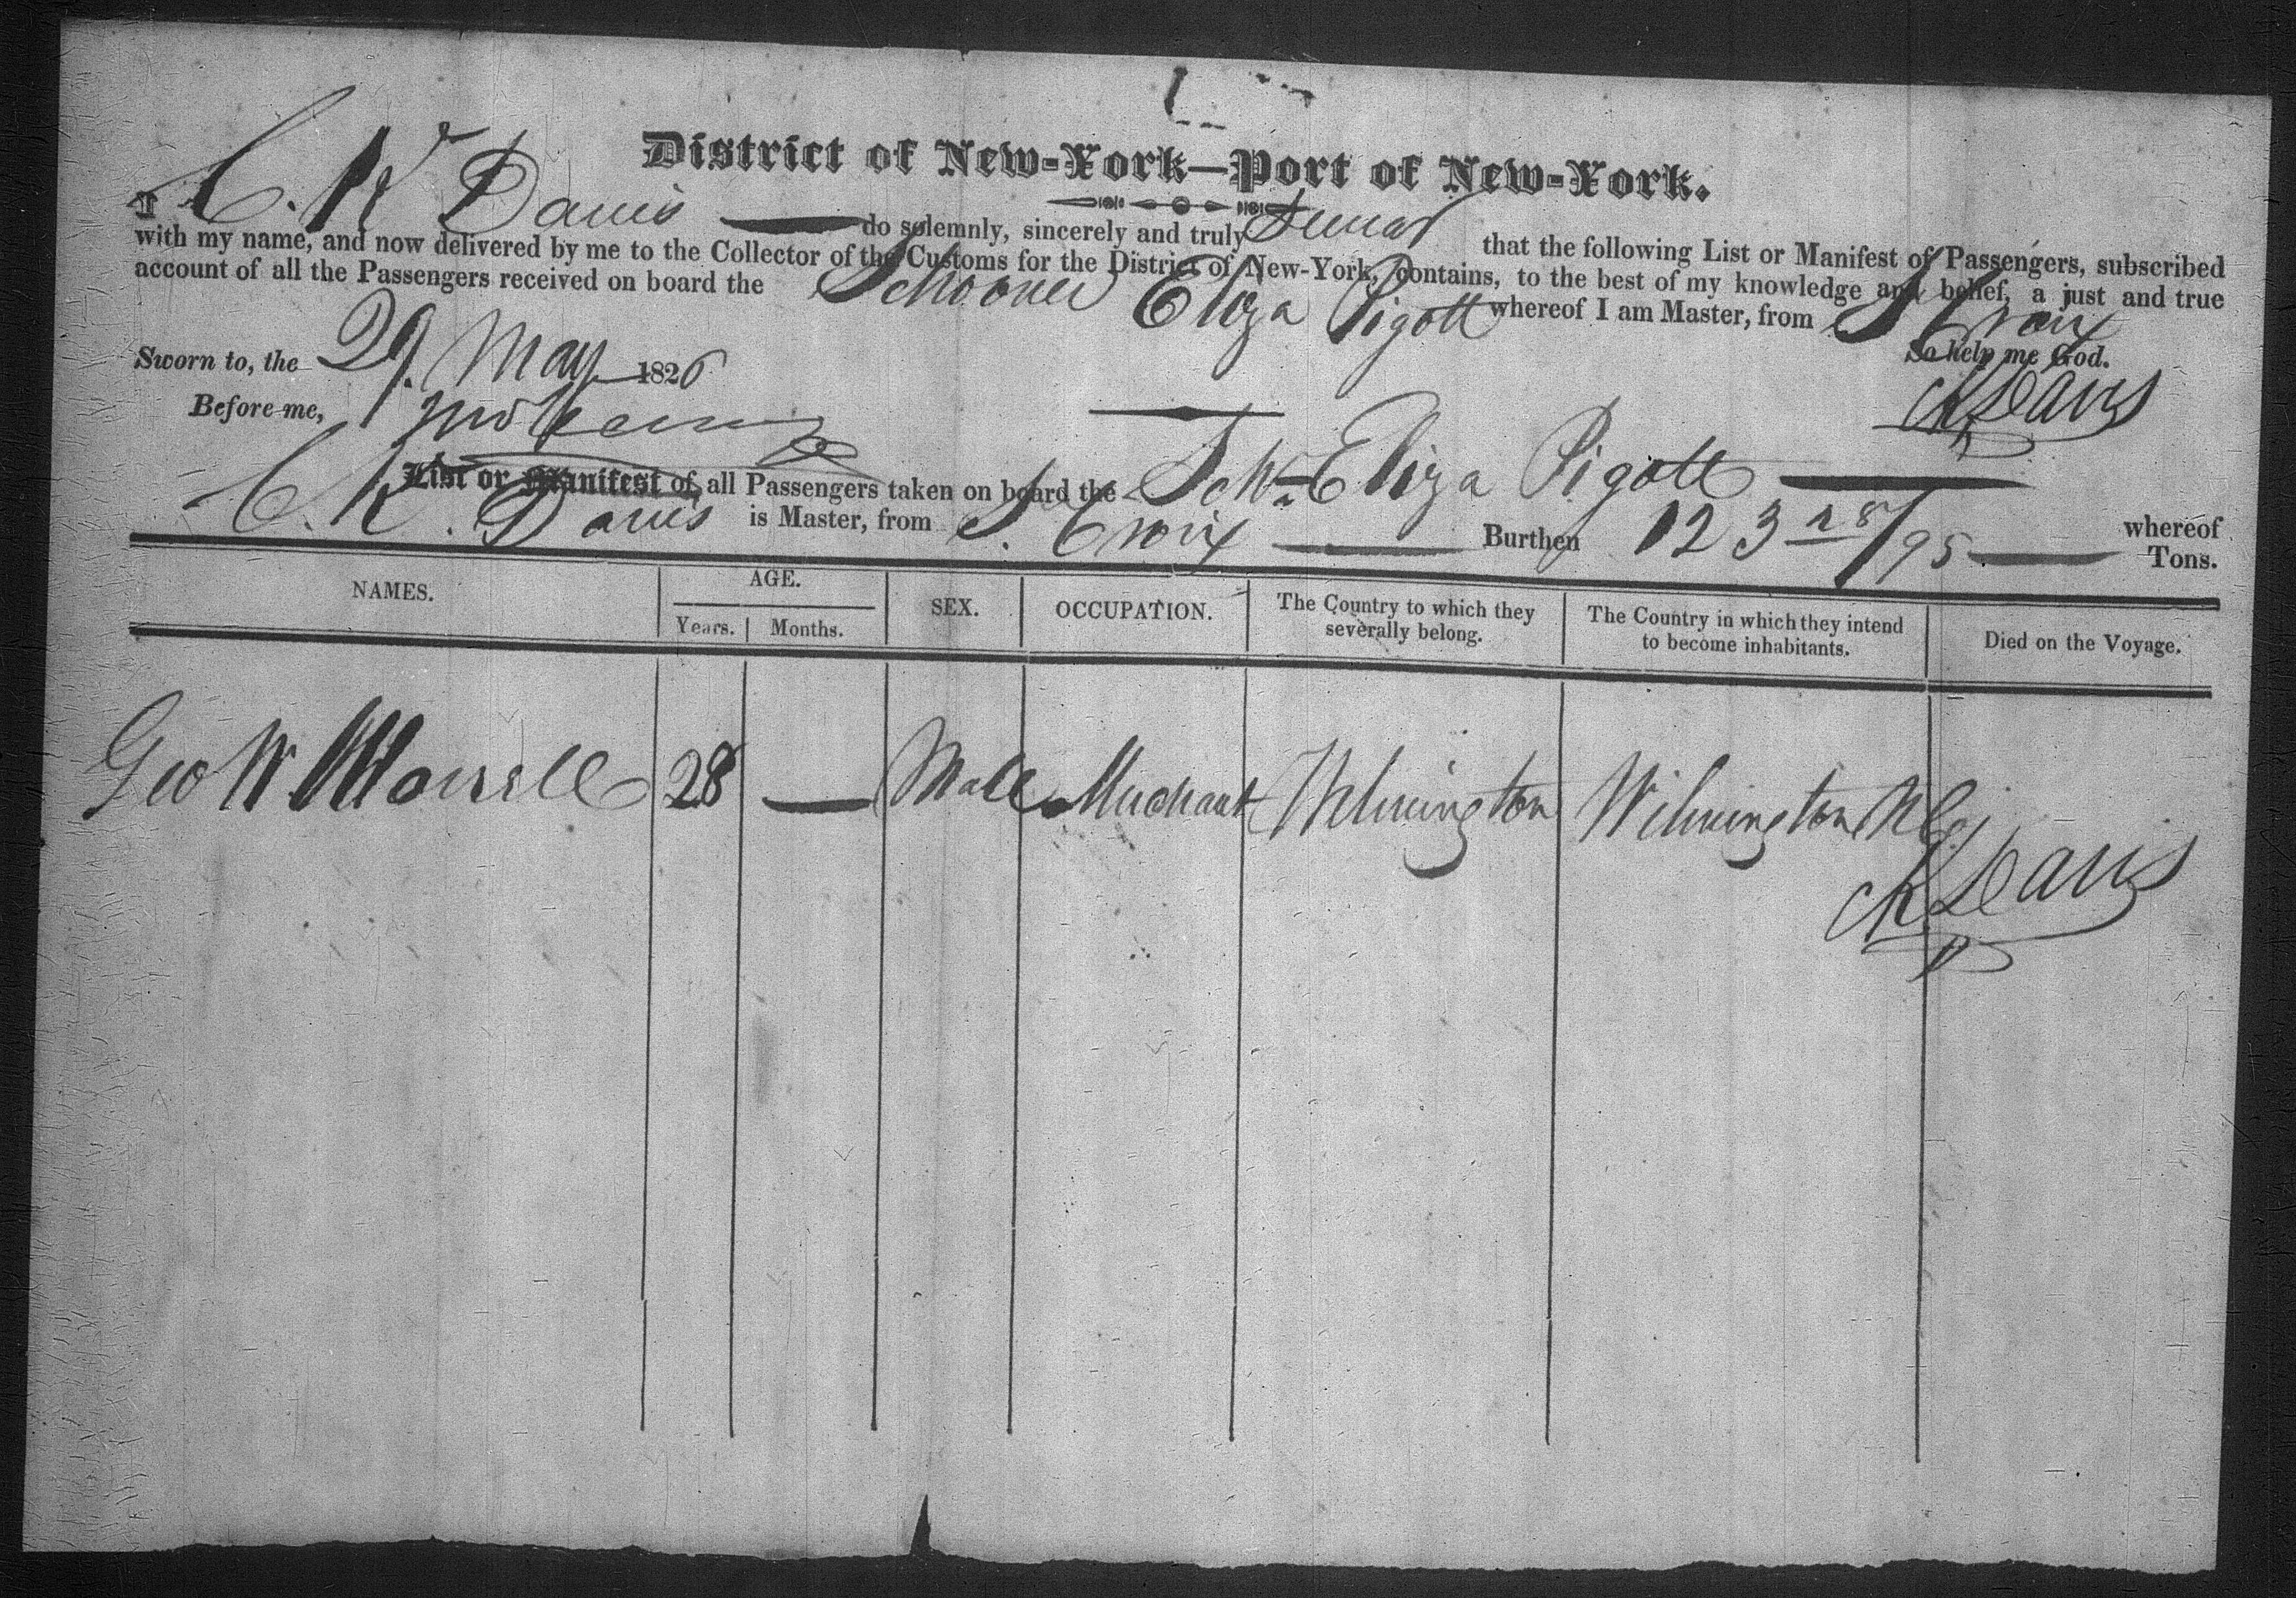 District of New-York—Port of New-York.
I C. K. Davis do solemnly, sincerely and truly Swear that the following List or Manifest of Passengers, subscribed
with my name, and now delivered by me to the Collector of the Customs for the District of New-York, contains, to the best of my knowledge and belief, a just and true
account of all the Passengers received on board the Schooner Eliza Pigott whereof I am Master, from S. Croix
So help me God.
Sworn to, the 29. May 1826
CKDavis
Before me,
List or Manifest of all Passengers taken on board the Schr. Eliza Pigott whereof
C. K. Davis is Master, from S. Croix Burthen 123 28/95 Tons.
NAMES. AGE. SEX. OCCUPATION. The Country to which they severally belong. The Country in which they intend to become inhabitants. Died on the Voyage.
Years. Months.
Geo W. 28 — Male Merchant Wilmington Wilmington NC
CKDavis